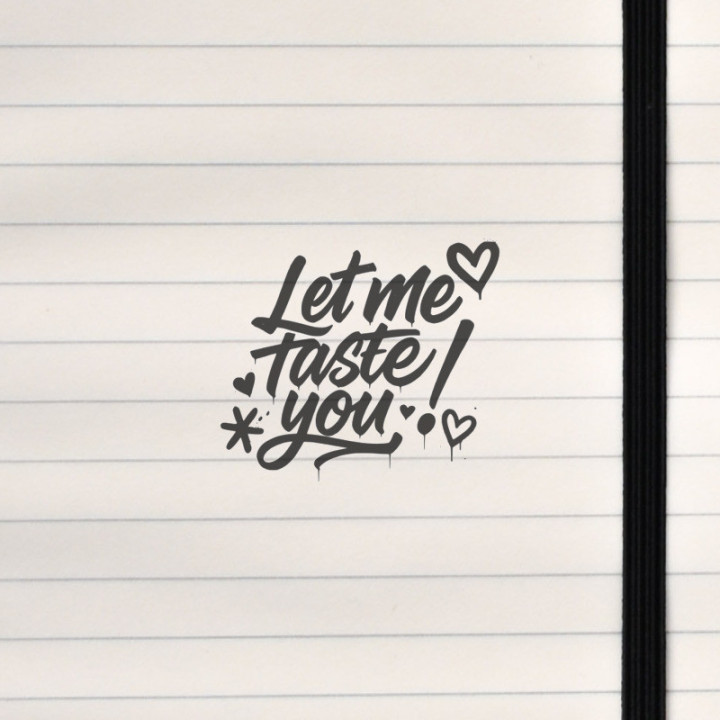 Let me
taste
you!